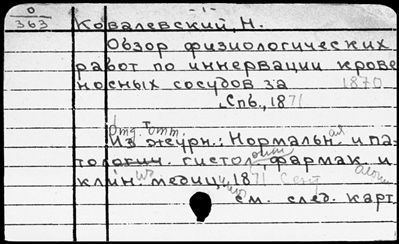 0
363
-1-
Ковалевский, Н.
Обзор физиологических
работ по иннервации крове
носных сосудов за 1870
Спб., 1871
Отд. отт.
Из журн.: Нормальн. и па-
тологич. гистол., фармак. и
клин. медиц., 1871 Сент
см. след. карт